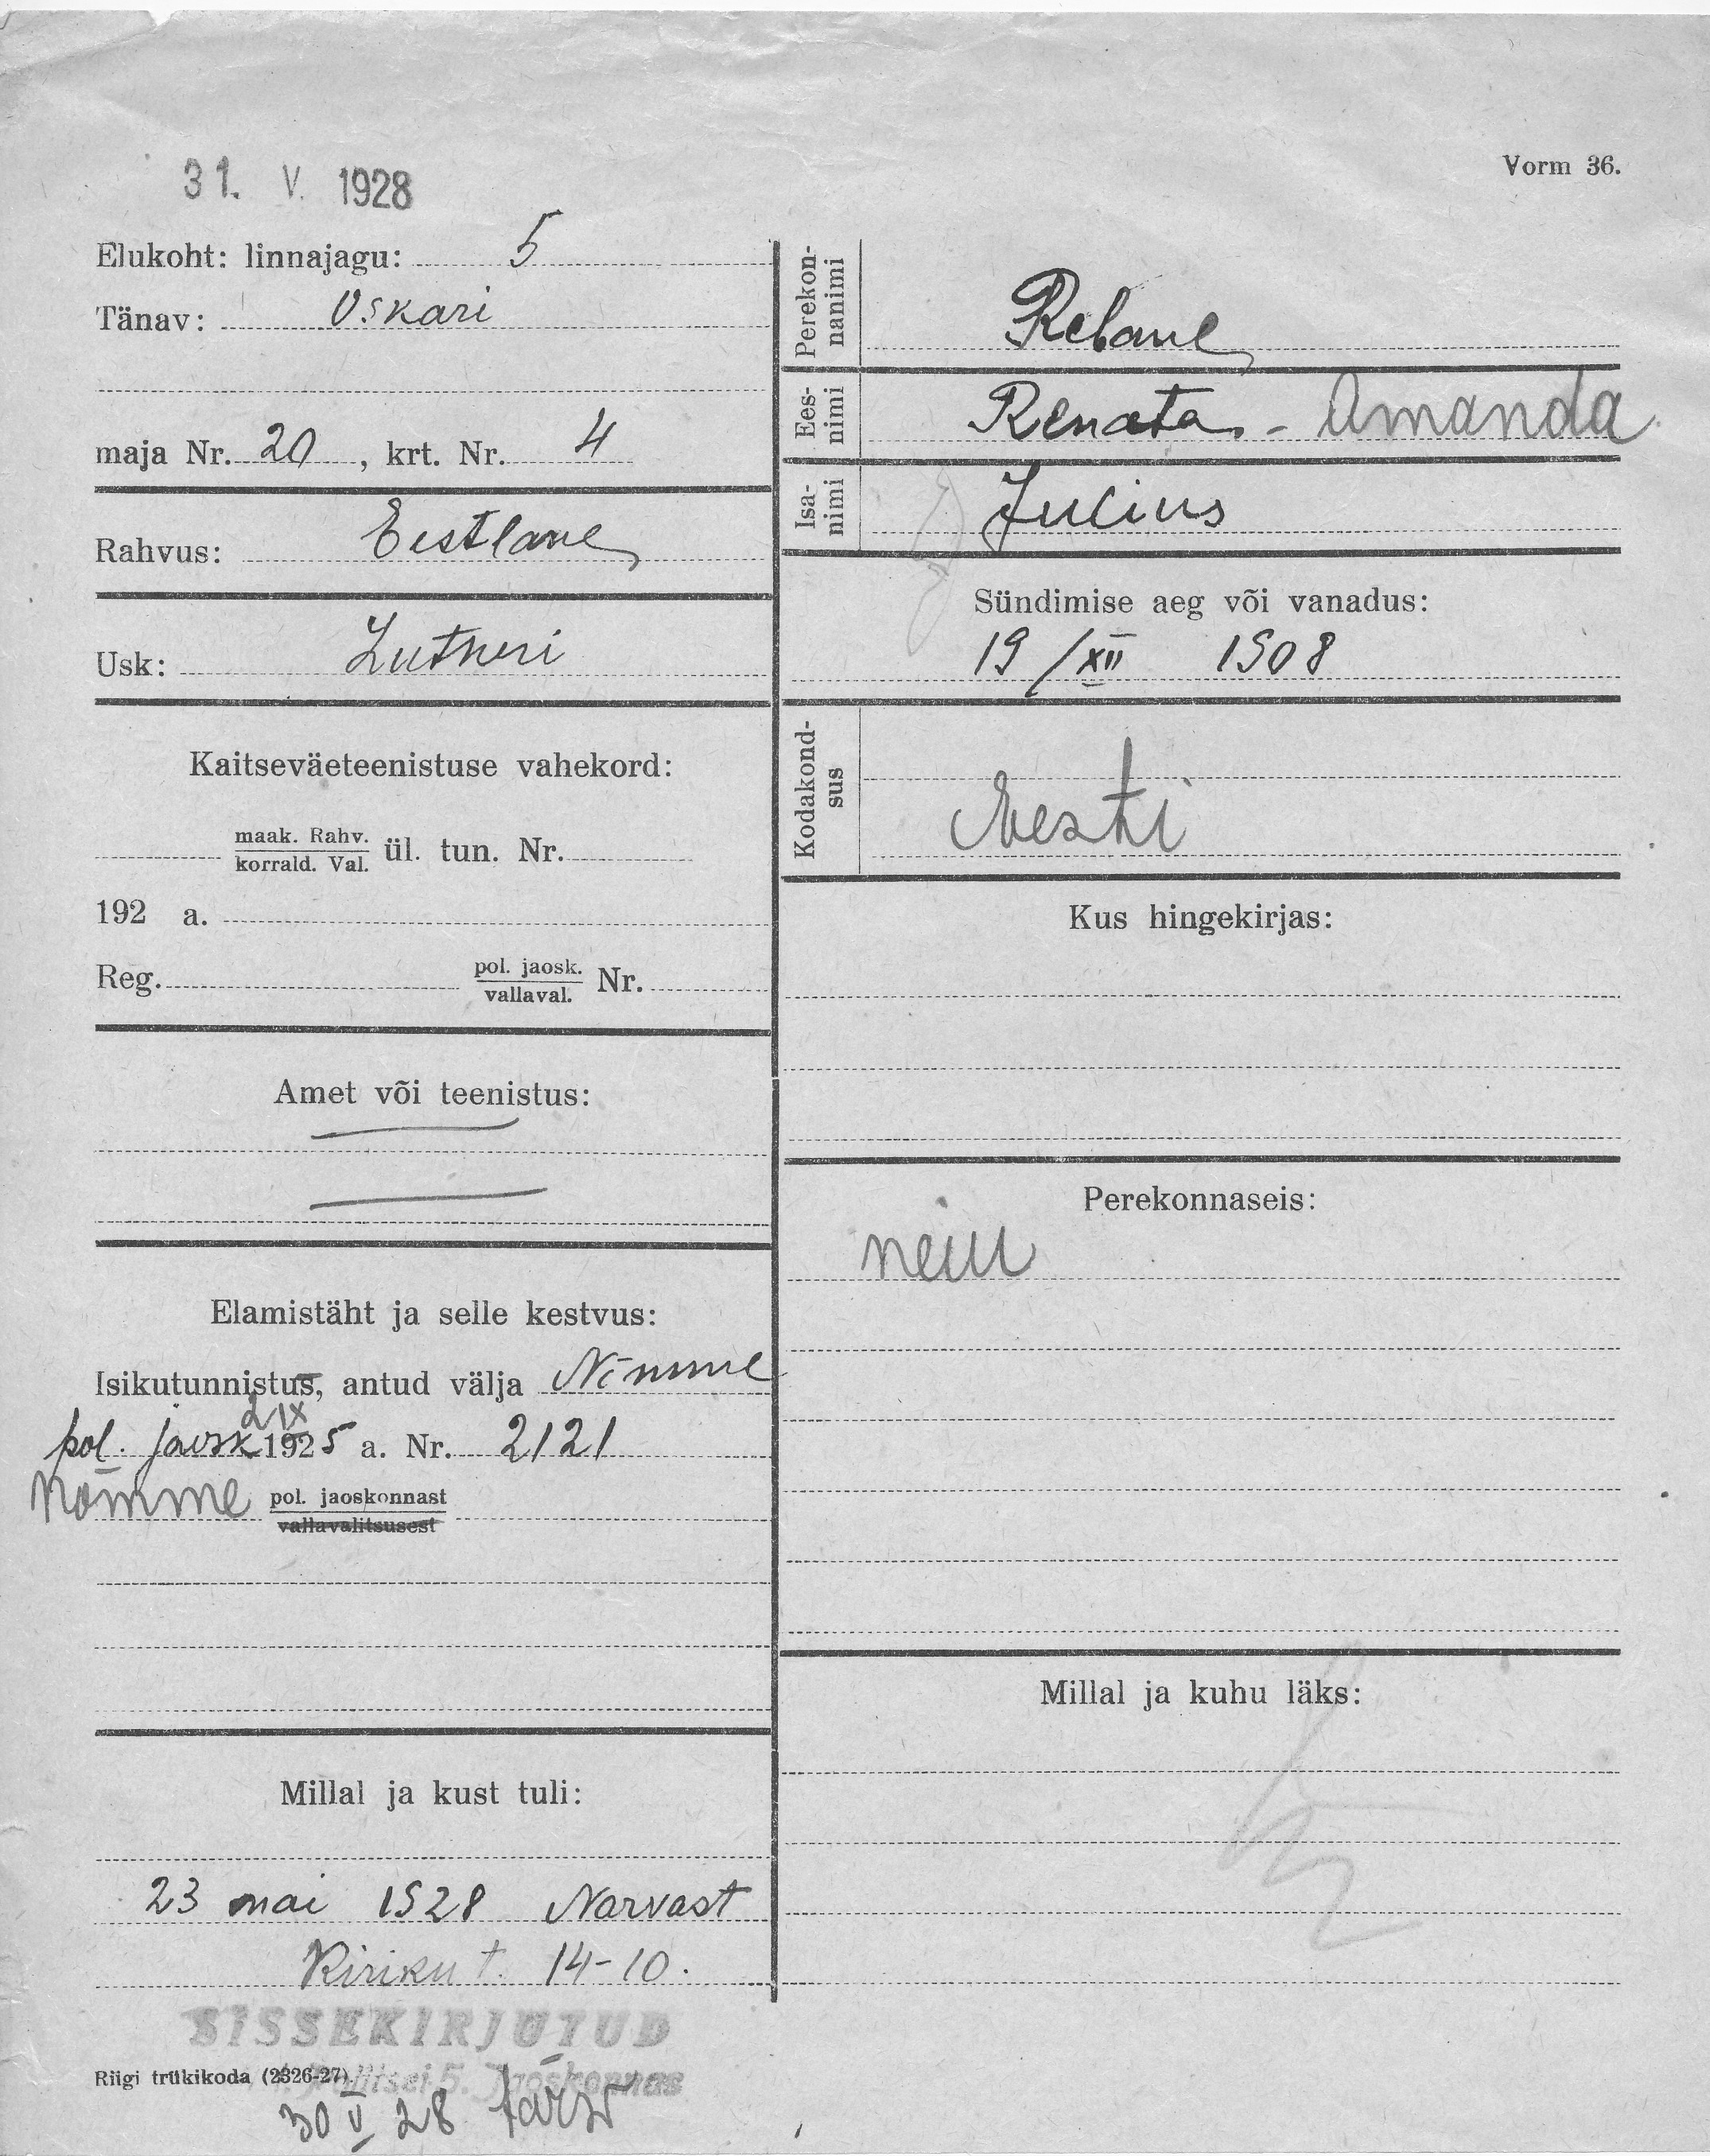 31. V. 1928
Vorm 36.
Elukoht: linnajagu: 5
Tänav: Oskari
maja Nr. 20, krt. Nr. 4
Rahvus: Eestlane
Usk: Lutheri
Kaitseväeteenistuse vahekord:
maak. Rahv.
korrald. Val. ül. tun. Nr.
192 a.
Reg. pol. jaosk.
vallaval. Nr.
Amet või teenistus:
Elamistäht ja selle kestvus:
Isikutunnistus, antud välja Nõmme
2 IX
pol. jaosk 1925 a. Nr. 2121
Nõmme pol. jaoskonnast
vallavalitsusest
Millal ja kust tuli:
23 mai 1928 Narvast
Kiriku t. 14-10.
SISSEKIRJUTUD
Politsei 5. Jaoskonnas
Riigi trükikoda (2326-27)
30 V 28
Perekon-
nanimi
Rebane
Ees-
nimi
Renata - Amanda
Isa-
nimi
Julius
Sündimise aeg või vanadus:
19/XII 1908
Kodakond-
sus
Eesti
Kus hingekirjas:
Perekonnaseis:
neiu
Millal ja kuhu läks: